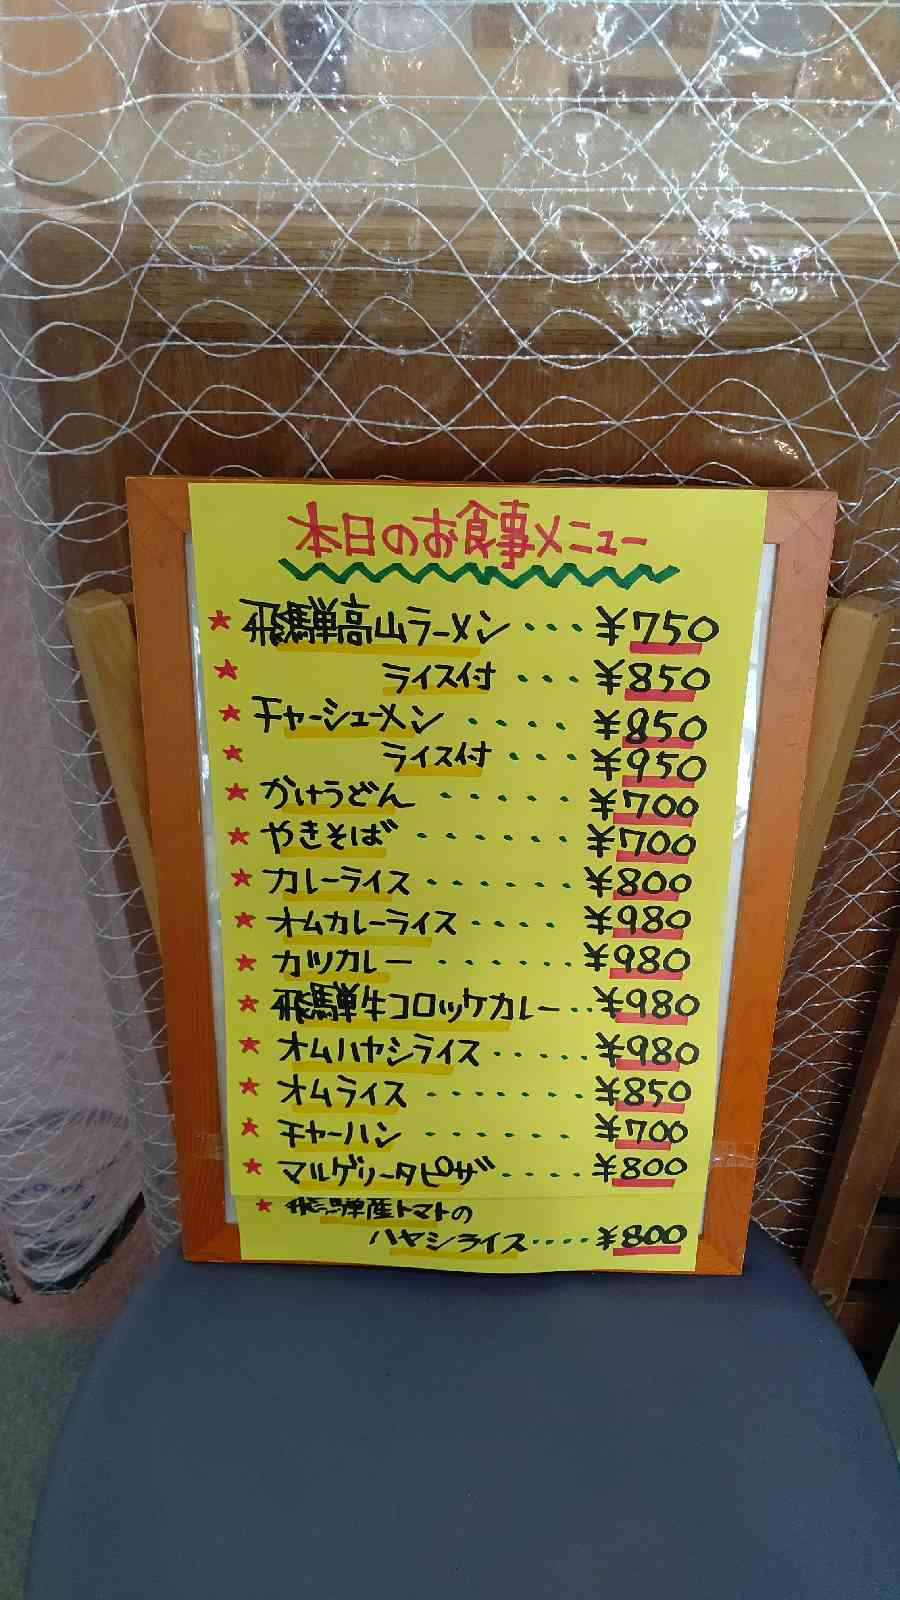 本日のお食事メニュー
★ 飛騨高山ラーメン ・・・ ¥750
★ ライス付 ・・・ ¥850
★ チャーシューメン ・・・・ ¥850
★ ライス付 ・・・ ¥950
★ かけうどん ・・・・・ ¥700
★ やきそば ・・・・・・ ¥700
★ カレーライス ・・・・・・ ¥800
★ オムカレーライス ・・・・ ¥980
★ カツカレー ・・・・・・ ¥980
★ 飛騨牛コロッケカレー ・・ ¥980
★ オムハヤシライス ・・・・・ ¥980
★ オムライス ・・・・・・・ ¥850
★ チャーハン ・・・・・・ ¥700
★ マルゲリータピザ ・・・・ ¥800
★ 飛騨産トマトの
ハヤシライス ・・・・ ¥800